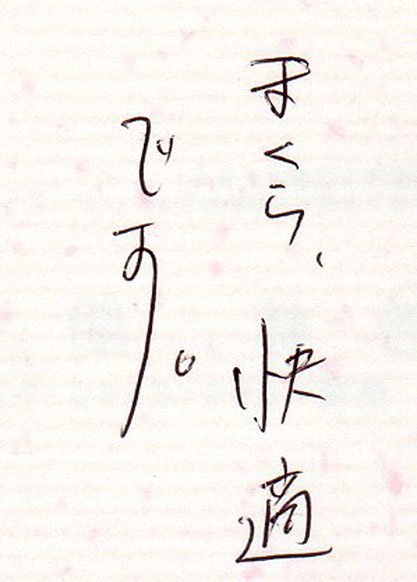 まくら、快適
です。